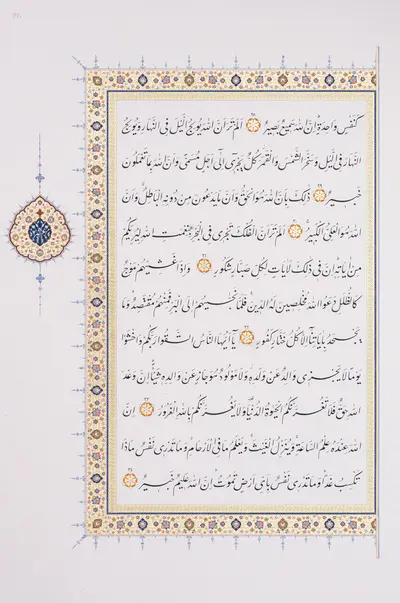 كَنَفْسٍ وَاحِدَةٍ اِنَّ اللهَ سَمِيعٌ بَصِيرٌ ۞ اَلَمْ تَرَ اَنَّ اللهَ يُولِجُ الَّيْلَ فِى النَّهَارِ وَيُولِجُ
النَّهَارَ فِى الَّيْلِ وَسَخَّرَ الشَّمْسَ وَالْقَمَرَ كُلٌّ يَجْرِى اِلَى اَجَلٍ مُسَمًّى وَاَنَّ اللهَ بِمَا تَعْمَلُونَ
خَبِيرٌ ۞ ذٰلِكَ بِاَنَّ اللهَ هُوَ الْحَقُّ وَاَنَّ مَا يَدْعُونَ مِنْ دُونِهِ الْبَاطِلُ وَاَنَّ
اللهَ هُوَ الْعَلِىُّ الْكَبِيرُ ۞ اَلَمْ تَرَ اَنَّ الْفُلْكَ تَجْرِى فِى الْبَحْرِ بِنِعْمَتِ اللهِ لِيُرِيَكُمْ
مِنْ اٰيَاتِهِ اِنَّ فِى ذٰلِكَ لَاٰيَاتٍ لِكُلِّ صَبَّارٍ شَكُورٍ ۞ وَاِذَا غَشِيَهُمْ مَوْجٌ
كَالظُّلَلِ دَعَوُا اللهَ مُخْلِصِينَ لَهُ الدِّينَ فَلَمَّا نَجّٰيهُمْ اِلَى الْبَرِّ فَمِنْهُمْ مُقْتَصِدٌ وَمَا
يَجْحَدُ بِاٰيَاتِنَا اِلَّا كُلُّ خَتَّارٍ كَفُورٍ ۞ يَا اَيُّهَا النَّاسُ اتَّقُوا رَبَّكُمْ وَاخْشَوْا
يَوْمًا لَا يَجْزِى وَالِدٌ عَنْ وَلَدِهِ وَلَا مَوْلُودٌ هُوَ جَازٍ عَنْ وَالِدِهِ شَيْئًا اِنَّ وَعْدَ
اللهِ حَقٌّ فَلَا تَغُرَّنَّكُمُ الْحَيٰوةُ الدُّنْيَا وَلَا يَغُرَّنَّكُمْ بِاللهِ الْغَرُورُ ۞ اِنَّ
اللهَ عِنْدَهُ عِلْمُ السَّاعَةِ وَيُنَزِّلُ الْغَيْثَ وَيَعْلَمُ مَا فِى الْاَرْحَامِ وَمَا تَدْرِى نَفْسٌ مَاذَا
تَكْسِبُ غَدًا وَمَا تَدْرِى نَفْسٌ بِاَىِّ اَرْضٍ تَمُوتُ اِنَّ اللهَ عَلِيمٌ خَبِيرٌ ۞